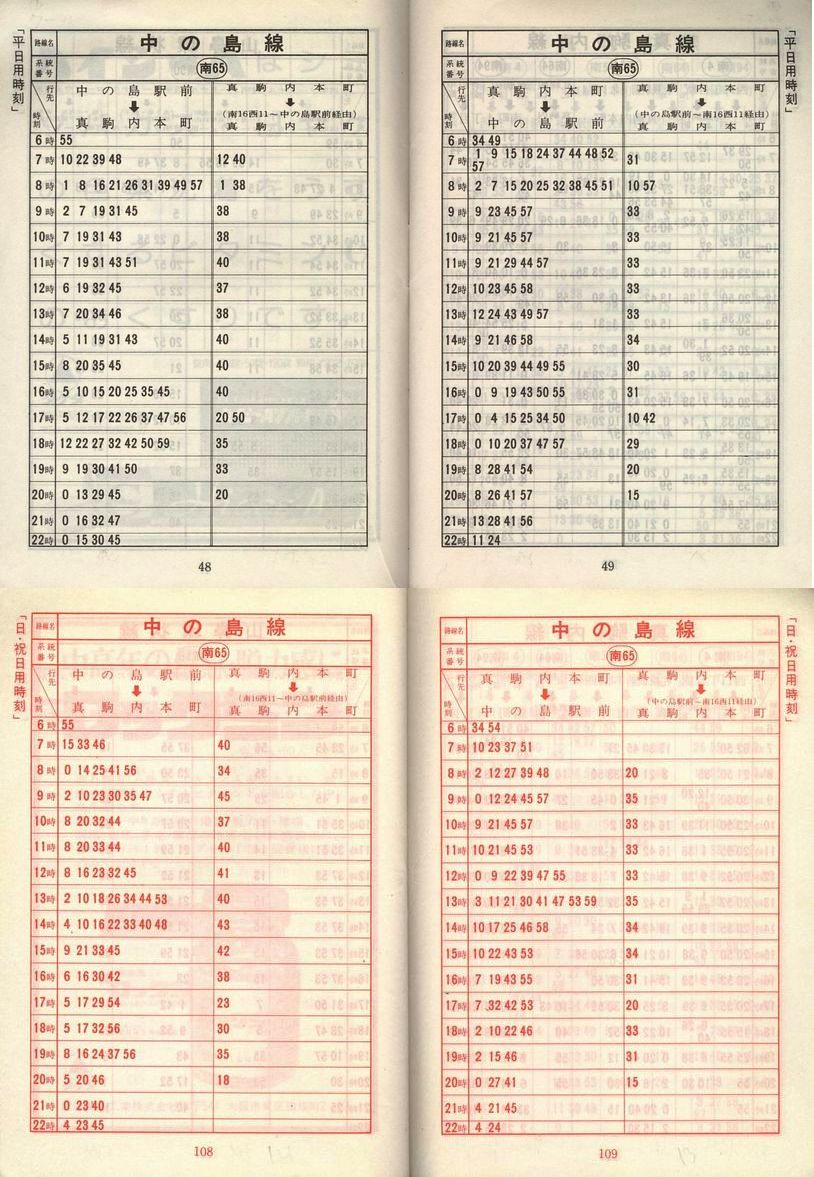 「平日用時刻」
路線名 中の島線
系統番号 南65
行先 時刻 中の島駅前 ↓ 真駒内本町 真駒内本町 ↓ (南16西11~中の島駅前経由) 真駒内本町
6時 55
7時 10 22 39 48 12 40
8時 1 8 16 21 26 31 39 49 57 1 38
9時 2 7 19 31 45 38
10時 7 19 31 43 38
11時 7 19 31 43 51 40
12時 6 19 32 45 37
13時 7 20 34 46 38
14時 5 11 19 31 43 40
15時 8 20 35 45 40
16時 5 10 15 20 25 35 45 40
17時 5 12 17 22 26 37 47 56 20 50
18時 12 22 27 32 42 50 59 35
19時 9 19 30 41 50 33
20時 0 13 29 45 20
21時 0 16 32 47
22時 0 15 30 45
48
「平日用時刻」
路線名 中の島線
系統番号 南65
行先 時刻 真駒内本町 ↓ 中の島駅前 真駒内本町 ↓ (中の島駅前~南16西11経由) 真駒内本町
6時 34 49
7時 1 9 15 18 24 37 44 48 52 57 31
8時 2 7 15 20 25 32 38 45 51 10 57
9時 9 23 45 57 33
10時 9 21 45 57 33
11時 9 21 29 44 57 33
12時 10 23 45 58 33
13時 12 24 43 49 57 33
14時 9 21 46 58 34
15時 10 20 39 44 49 55 30
16時 0 9 19 43 50 55 31
17時 0 4 15 25 34 50 10 42
18時 0 10 20 37 47 57 29
19時 8 28 41 54 20
20時 8 26 41 57 15
21時 13 28 41 56
22時 11 24
49
「日・祝日用時刻」
路線名 中の島線
系統番号 南65
行先 時刻 中の島駅前 ↓ 真駒内本町 真駒内本町 ↓ (南16西11~中の島駅前経由) 真駒内本町
6時 55
7時 15 33 46 40
8時 0 14 25 41 56 34
9時 2 10 23 30 35 47 45
10時 8 20 32 44 37
11時 8 20 33 44 40
12時 8 16 23 32 45 41
13時 2 10 18 26 34 44 53 40
14時 4 10 16 22 33 40 48 43
15時 9 21 33 45 42
16時 6 16 30 42 38
17時 5 17 29 54 23
18時 5 17 32 56 30
19時 8 16 24 37 56 35
20時 5 20 46 18
21時 0 23 40
22時 4 23 45
108
「日・祝日用時刻」
路線名 中の島線
系統番号 南65
行先 時刻 真駒内本町 ↓ 中の島駅前 真駒内本町 ↓ (中の島駅前~南16西11経由) 真駒内本町
6時 34 54
7時 10 23 37 51
8時 2 12 27 39 48 20
9時 0 12 24 45 57 35
10時 9 21 45 57 33
11時 10 21 45 53 33
12時 0 9 22 39 47 55 33
13時 3 11 21 30 41 47 53 59 35
14時 10 17 25 46 58 34
15時 10 22 43 53 34
16時 7 19 43 55 31
17時 7 32 42 53 20
18時 2 10 22 46 33
19時 2 15 46 31
20時 0 27 41 15
21時 4 21 45
22時 4 24
109